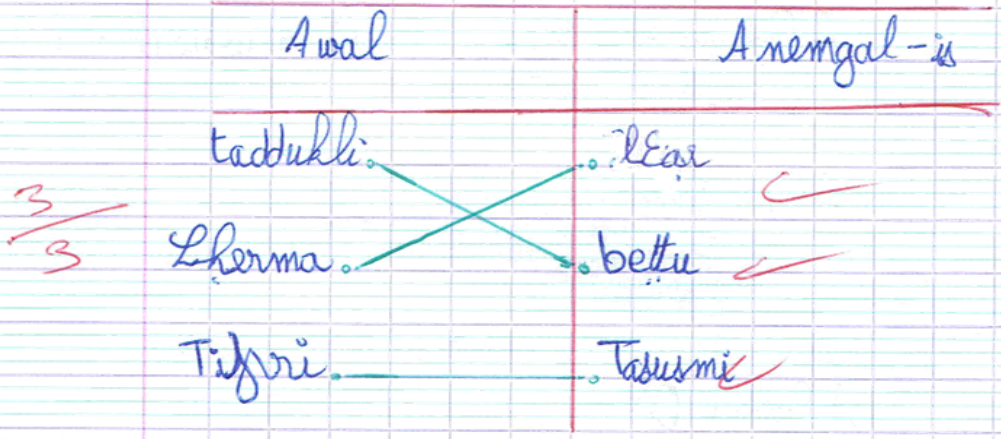 Awal Anemgal-is
taddukli lεaṛ
3/3
Lḥerma beṭṭu
Tifɣri Tasusmi